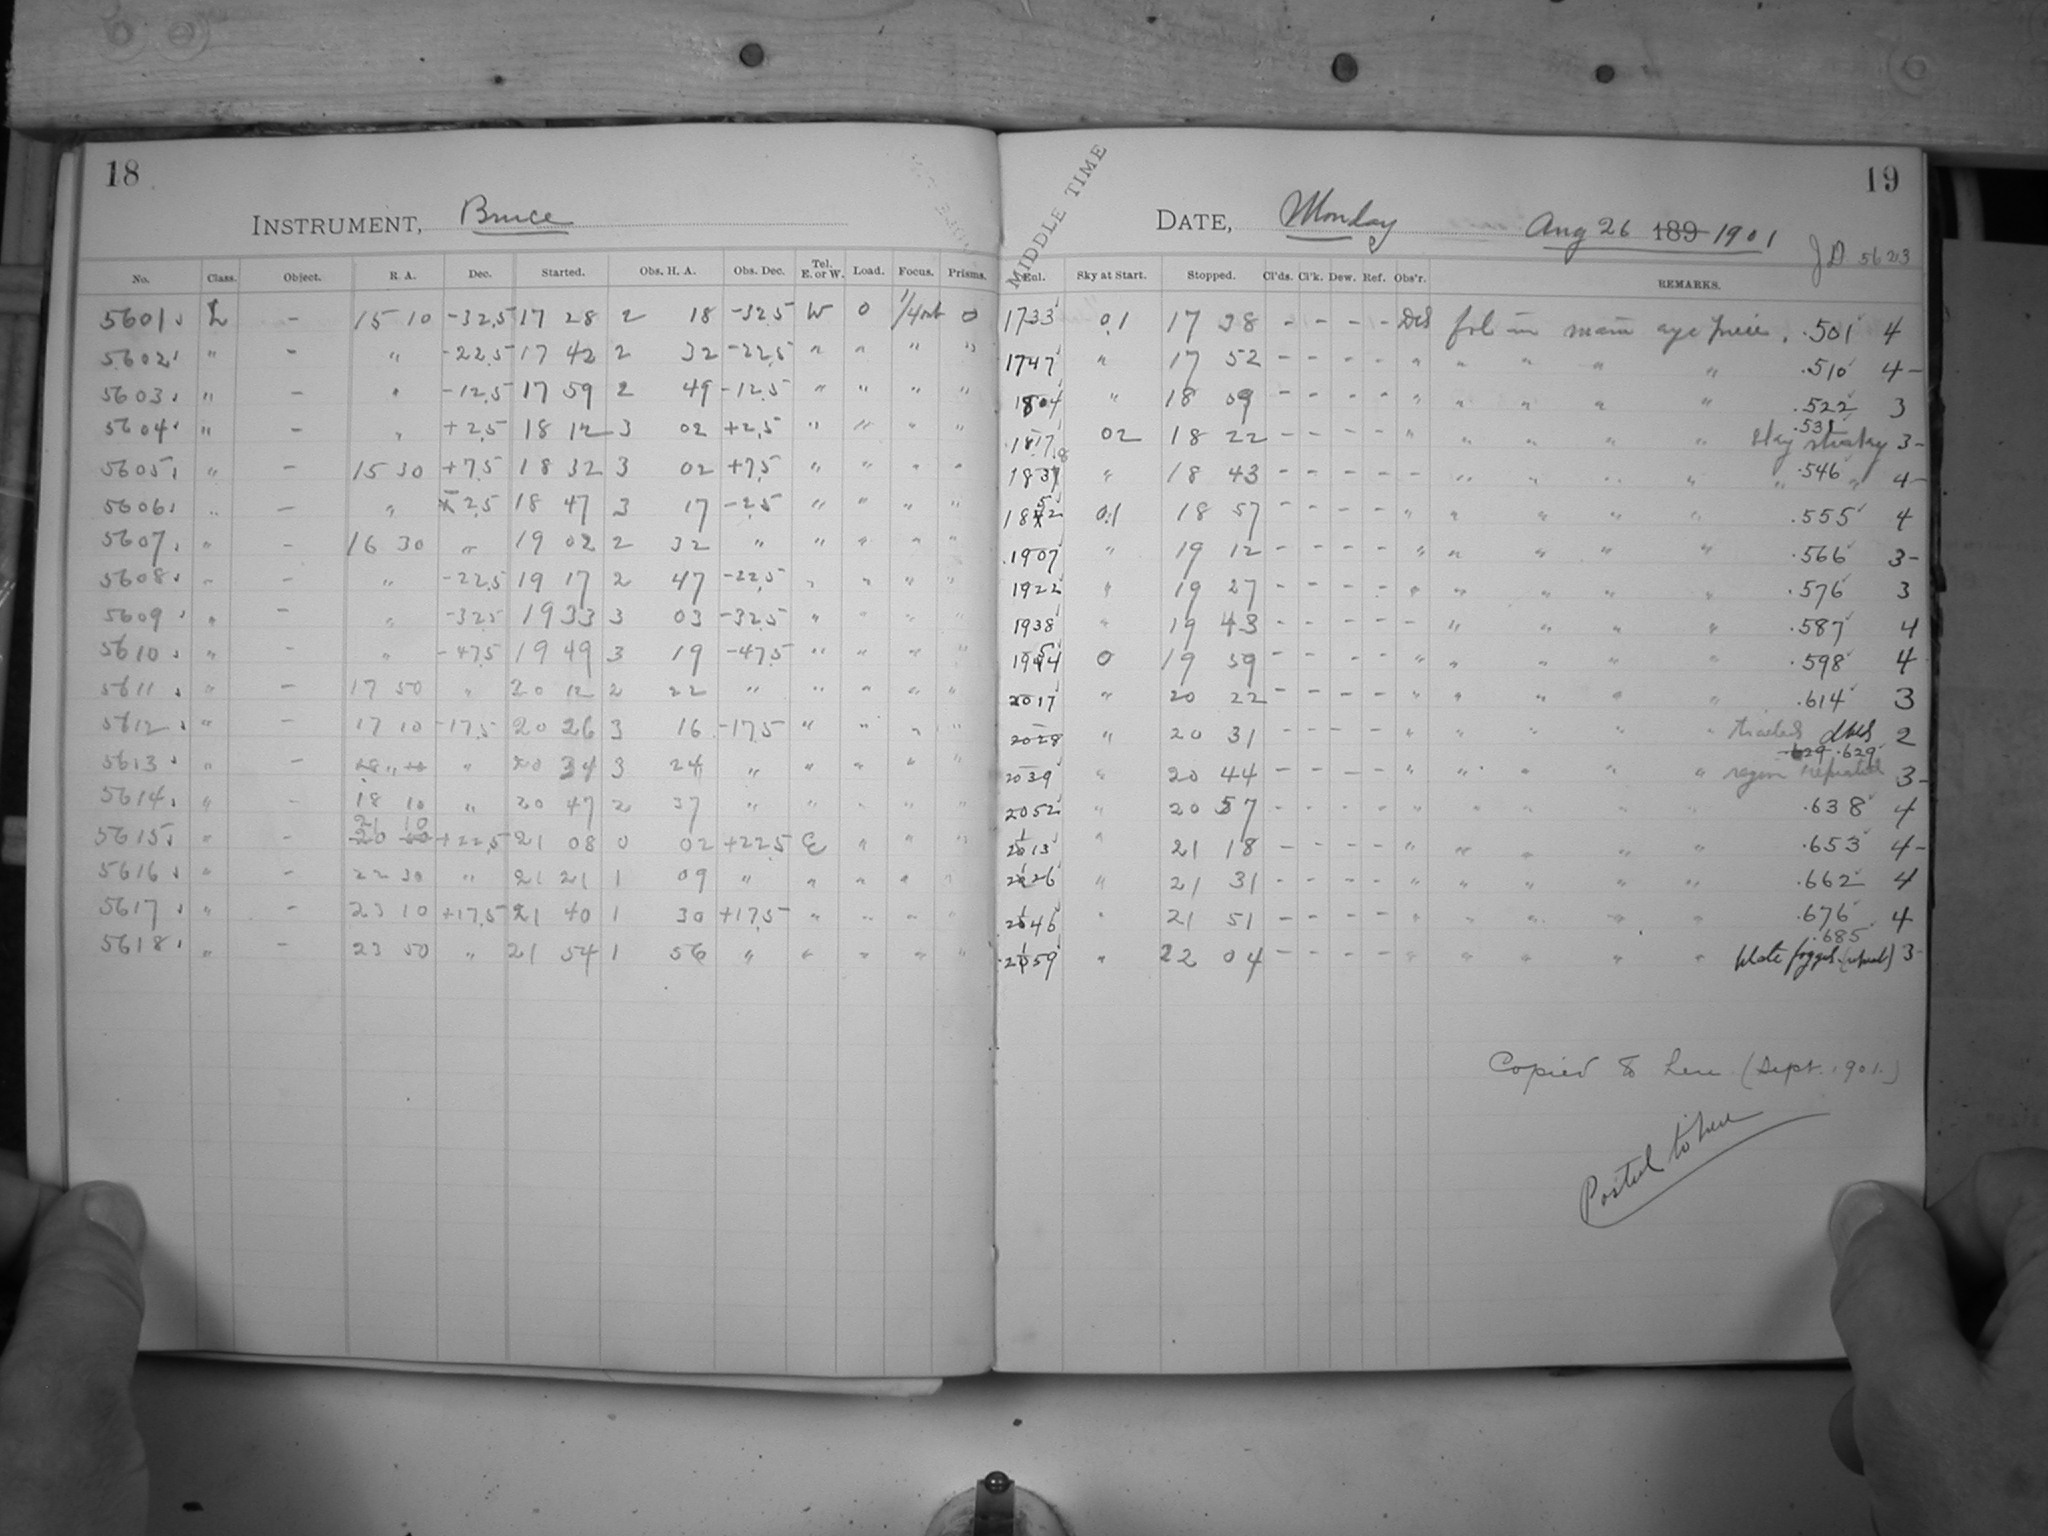 18
INSTRUMENT, Bruce
No. Class. Object. R. A. Dec. Started. Obs. H. A. Obs. Dec. Tel. E. or W. Load. Focus. Prisms.
5601 L - 15 10 -32.5 17 28 2 18 -32.5 W 0 1/4 out 0
5602 " - " -22.5 17 42 2 32 -22.5 " " " "
5603 " - " -12.5 17 59 2 49 -12.5 " " " "
5604 " - " +2.5 18 12 3 02 +2.5 " " " "
5605 " - 15 30 +7.5 18 32 3 02 +7.5 " " " "
5606 " - " -2.5 18 47 3 17 -2.5 " " " "
5607 " - 16 30 " 19 02 2 32 " " " " "
5608 " - " -22.5 19 17 2 47 -22.5 " " " "
5609 " - " -32.5 19 33 3 03 -32.5 " " " "
5610 " - " -47.5 19 49 3 19 -47.5 " " " "
5611 " - 17 50 " 20 12 2 22 " " " " "
5612 " - 17 10 -17.5 20 26 3 16 -17.5 " " " "
5613 " - " " 20 34 3 24 " " " " "
5614 " - 18 10 " 20 47 2 37 " " " " "
5615 " - 21 10 +22.5 21 08 0 02 +22.5 E " " "
5616 " - 22 30 " 21 21 1 09 " " " " "
5617 " - 23 10 +17.5 21 40 1 30 +17.5 " " " "
5618 " - 23 50 " 21 54 1 56 " " " " "
19
MIDDLE TIME
DATE, Monday Aug 26 189 1901
JD 5623
Sky at Start. Stopped. Cl'ds. Cl'k. Dew. Ref. Obs'r. REMARKS.
1733 0.1 17 38 - - - - fol in main eye piece. .501 4
1747 " 17 52 - - - - " " " " " .510 4-
1804 " 18 09 - - - - " " " " " .522 3
1817 02 18 22 - - - - " " " " " .531 sky streaky 3-
1838 " 18 43 - - - - - " " " " .546 " " 4-
1852 0.1 18 57 - - - - " " " " " .555 4
1907 " 19 12 - - - - " " " " " .566 3-
1922 " 19 27 - - - - " " " " " .576 3
1938 " 19 43 - - - - - " " " " .587 4
1954 0 19 59 - - - - " " " " " .598 4
2017 " 20 22 - - - - " " " " " .614 3
2028 " 20 31 - - - - " " " " " trailed 2
2039 " 20 44 - - - - " " " " " .629 .629 region repeated 3-
2052 " 20 57 - - - - " " " " " .638 4
2113 " 21 18 - - - - " " " " " .653 4-
2126 " 21 31 - - - - " " " " " .662 4
2146 " 21 51 - - - - " " " " " .676 4
2159 " 22 04 - - - - " " " " " .685 plate fogged (repeat) 3-
Copied to here (Sept. 1901.)
Posted to here